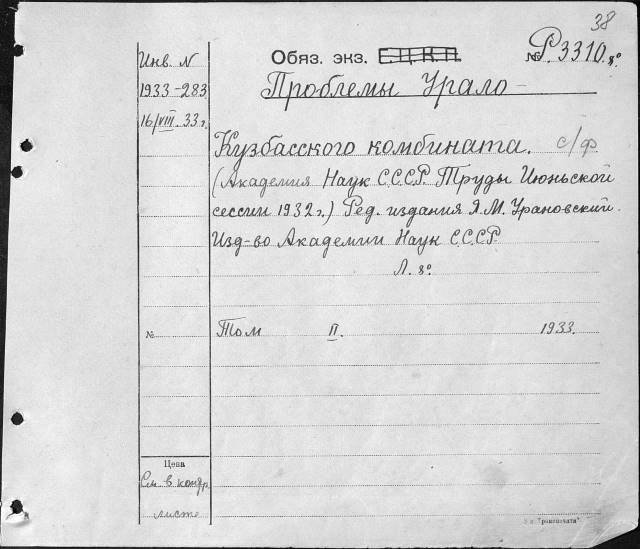 38
Инв. N
1933-283
16/VIII. 33 г.
Обяз. экз. Е.Ц.К.П. № Р. 3310. 8°
Проблемы Урало-
Кузбасского комбината. с/ф
(Академия Наук С.С.С.Р. Труды Июньской
сессии 1932 г.) Ред. издания Я.М. Урановский.
Изд-во Академии Наук С.С.С.Р.
Л. 8°
№ Том II. 1933.
Цена
См. в контр.
листе